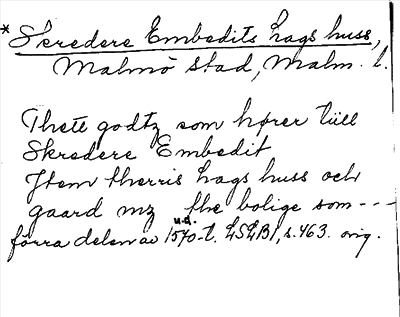 *Skredere Embedits Lags huss,
Malmö stad, Malm. l.
Thette godtz som hører tüll
Skredere Embedit
Jtem therris Lags huss och
gaard mz the bolige som ---
u.å.
förra delen av 1540-t. LSLB1, s. 463. orig.